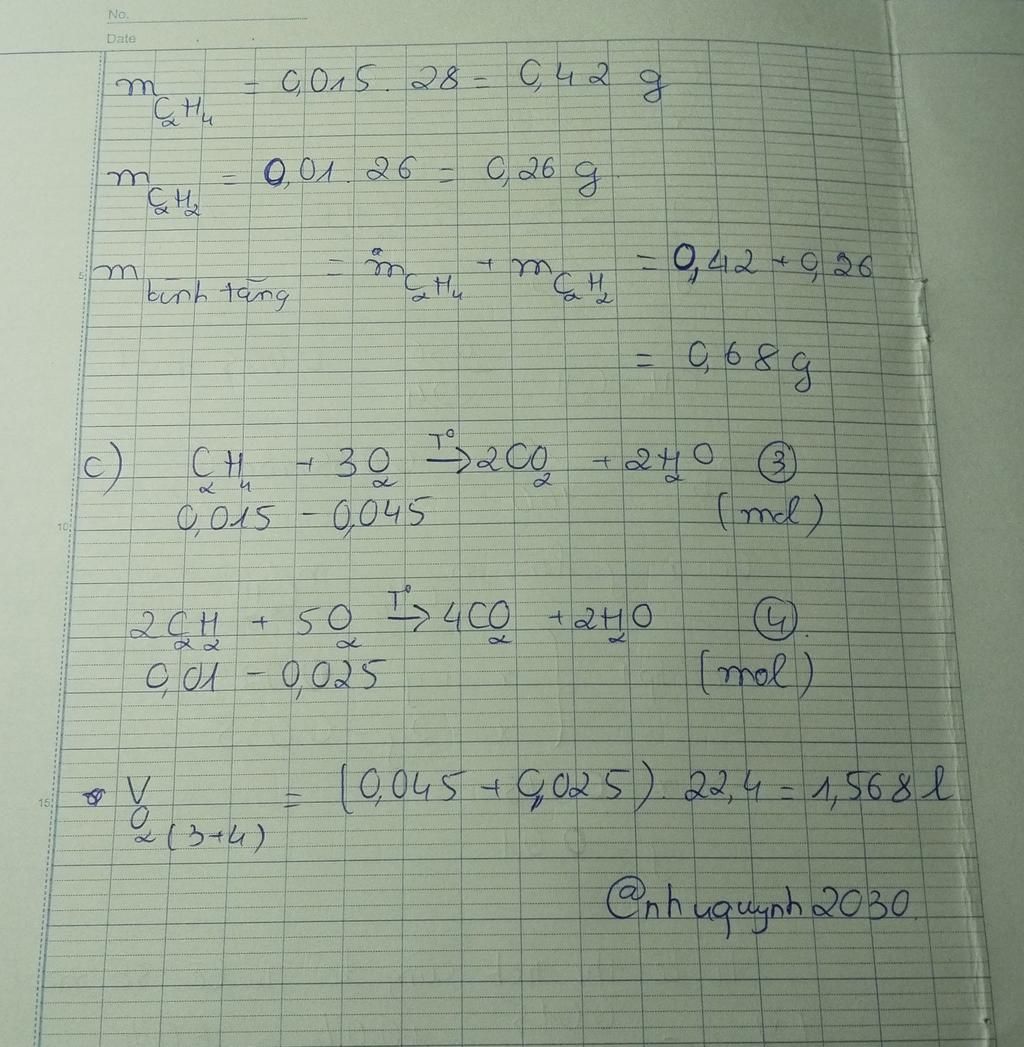 No.
Date
m C₂H₄ = 0,015 . 28 = 0,42 g
m C₂H₂ = 0,01 . 26 = 0,26 g
5 m bình tăng = m C₂H₄ + m C₂H₂ = 0,42 + 0,26
= 0,68 g
c) C₂H₄ + 3O₂ —T°→ 2CO₂ + 2H₂O ③
10 0,015 – 0,045 (mol)
2C₂H₂ + 5O₂ —T°→ 4CO₂ + 2H₂O ④
0,01 – 0,025 (mol)
15 V O₂ (3+4) = (0,045 + 0,025) . 22,4 = 1,568 l
@nhuquynh2030